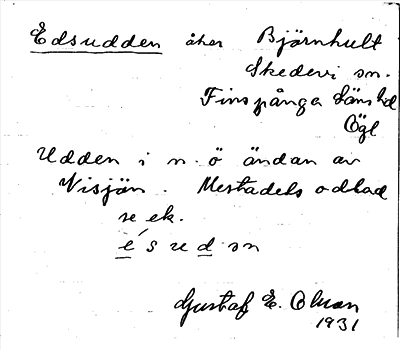 Edsudden åker Björnhult
Skedevi sn.
Finspånga länshd
Ögl
Udden i n. ö ändan av
Visjön. Mestadels odlad
se ek.
é s u d ən
Gustaf E. Olsson
1931